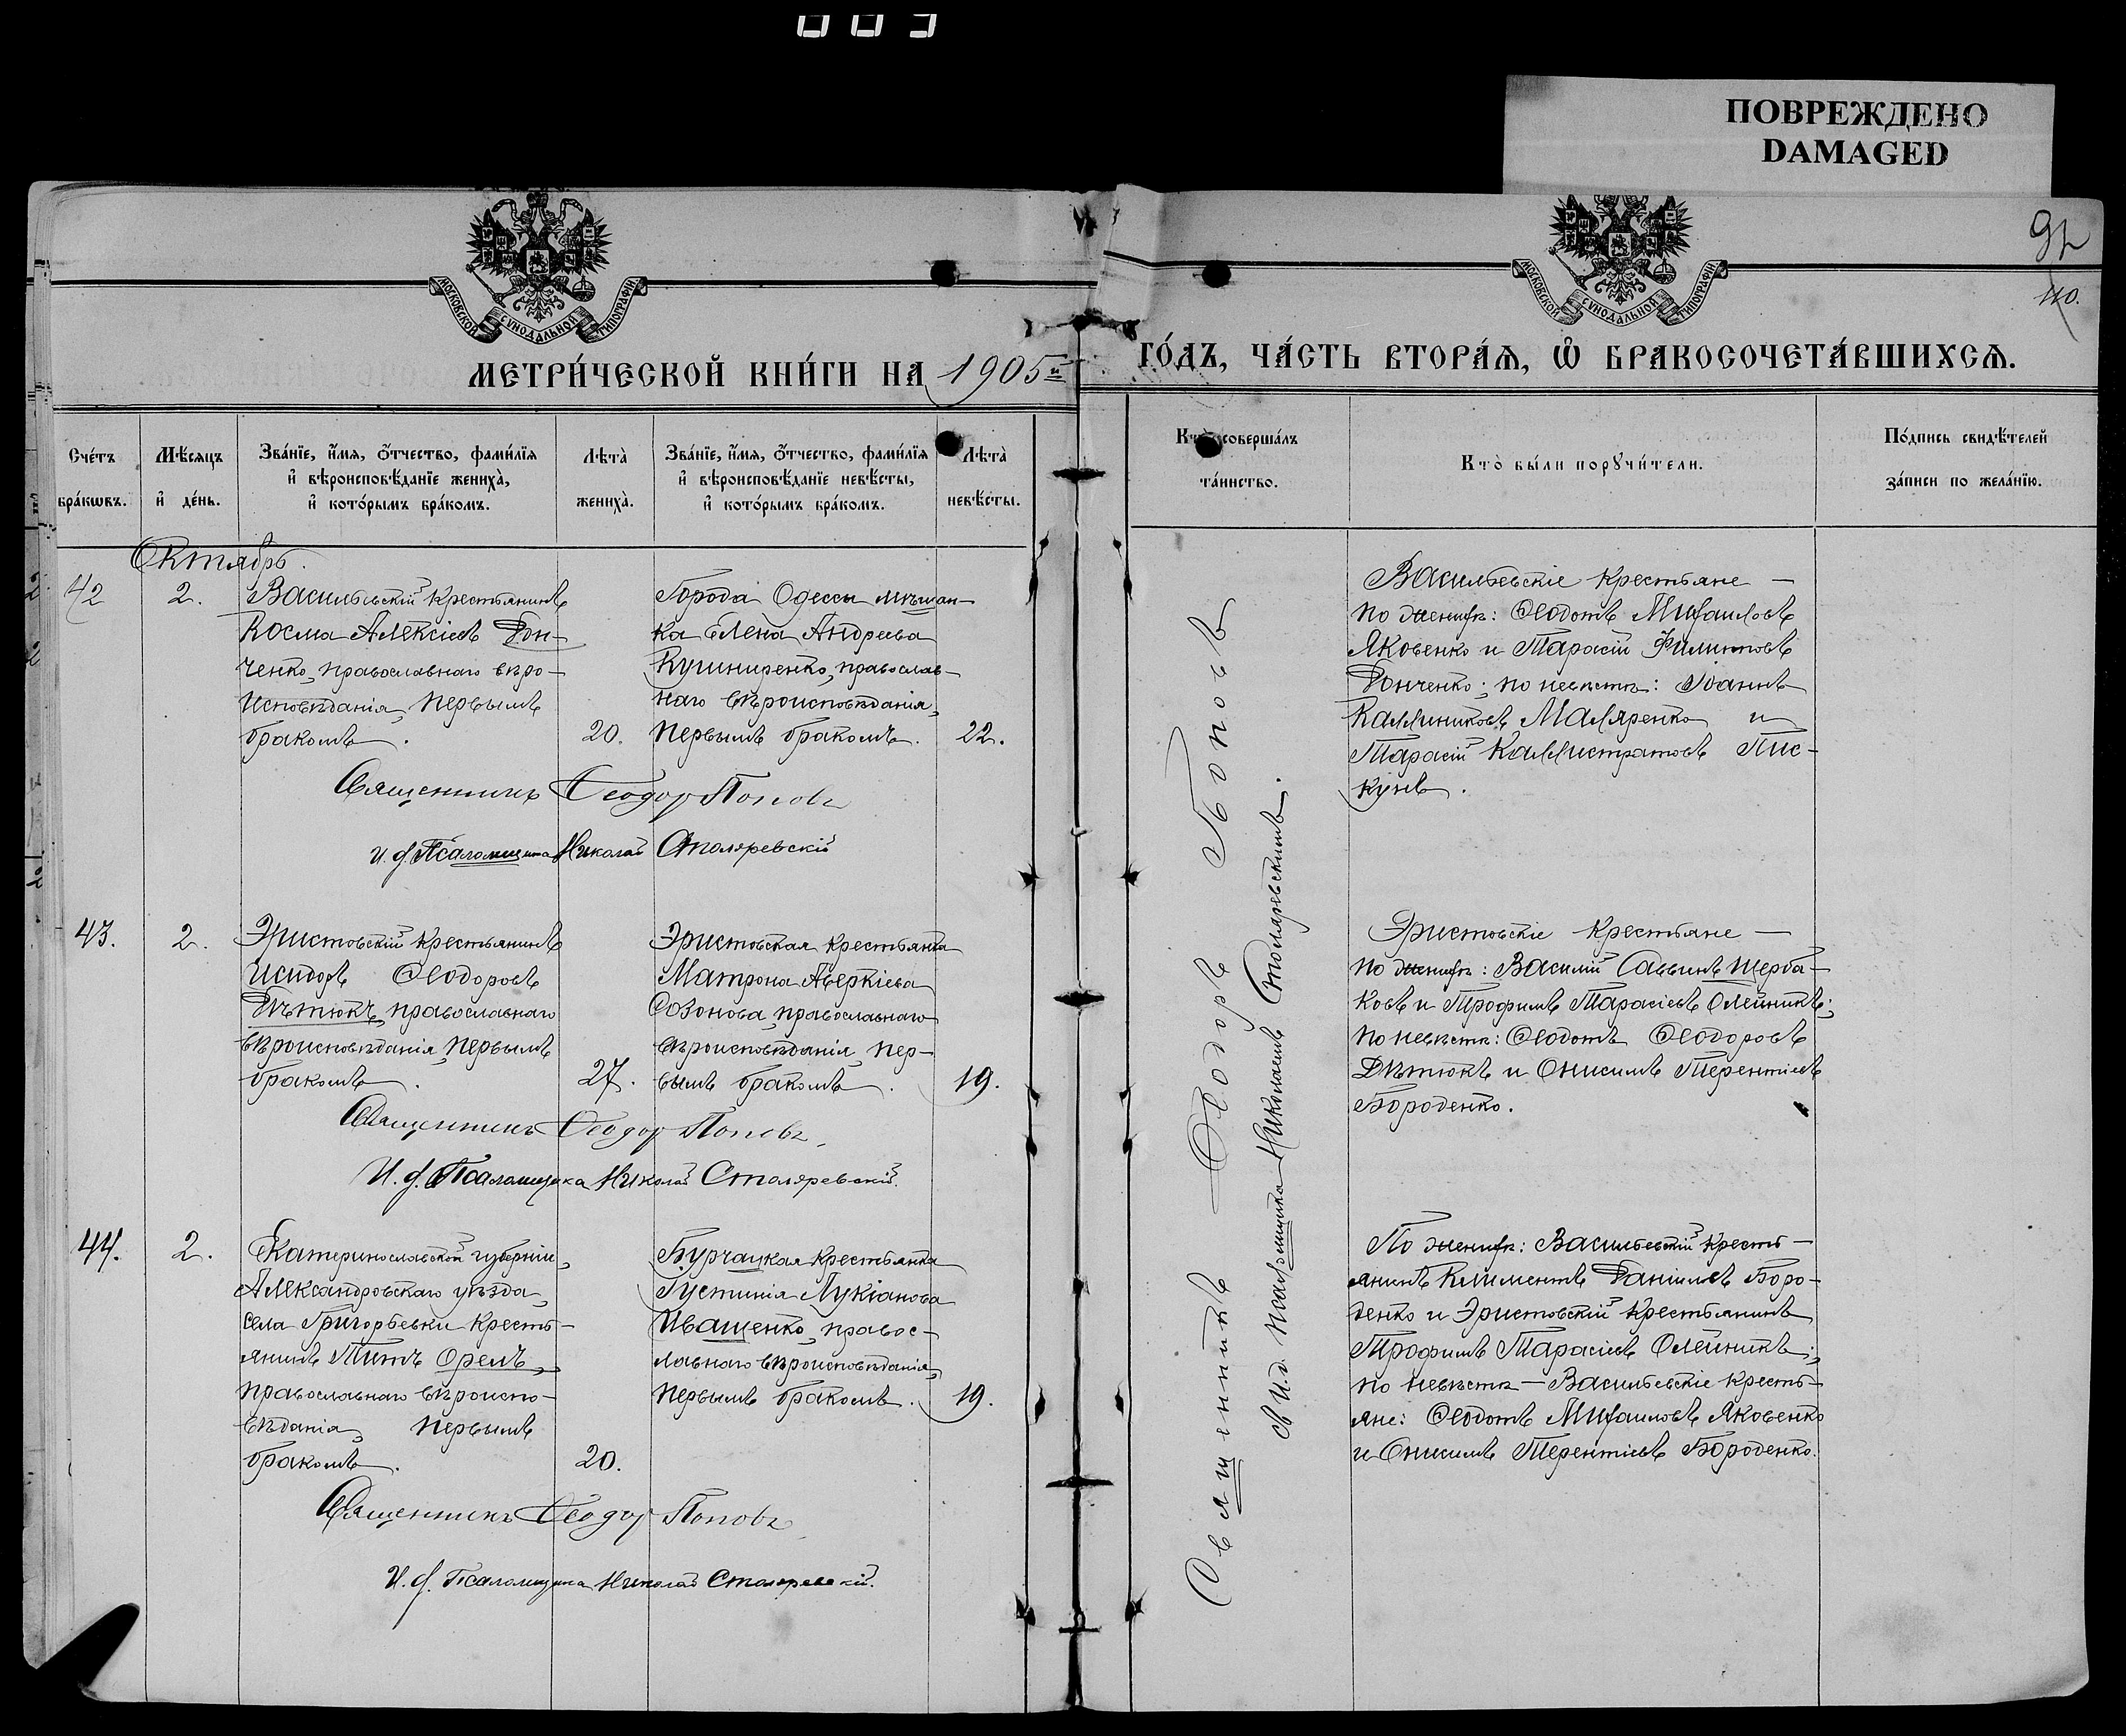 003
ПОВРЕЖДЕНО
DAMAGED
МОСКОВСКОЙ СѴНОДАЛЬНОЙ ТИПОГРАФІИ
МОСКОВСКОЙ СѴНОДАЛЬНОЙ ТИПОГРАФІИ
92
110.
МЕТРИ́ЧЕСКОЙ КНИ́ГИ НА 1905й ГО́ДЪ, ЧА́СТЬ ВТОРА́Я, Ѽ БРАКОСОЧЕТА́ВШИХСЯ.
Сче́тъ
бра́кѡвъ.
Мѣ́сяцъ
и҆ де́нь.
Зва́нїе, и҆́мя, ѻ҆́тчество, фами́лїя
и҆ вѣроисповѣ́данїе жениха̀,
и҆ кото́рымъ бра́комъ.
Лѣта̀
жениха̀.
Зва́нїе, и҆́мя, ѻ҆́тчество, фами́лїя
и҆ вѣроисповѣ́данїе невѣ́сты,
и҆ кото́рымъ бра́комъ.
Лѣта̀
невѣ́сты.
Кто̀ соверша́лъ
та́инство.
Кто̀ бы́ли порꙋчи́тели.
По́дпись свидѣ́телей
за́писи по жела́нїю.
Октябрь.
42
2.
Васильевскій крестьянинъ
Косма Алексіевъ Дон-
ченко, православнаго вѣро-
исповѣданія, первымъ
бракомъ.
20.
Города Одессы мѣщан-
ка Елена Андреева
Кушниренко, православ-
наго вѣроисповѣданія,
первымъ бракомъ.
22.
Васильевскіе крестьяне —
по женихѣ: Ѳеодотъ Михаиловъ
Яковенко и Тарасій Филиповъ
Донченко; по невѣстѣ: Іоаннъ
Каллиниковъ Маляренко и
Тарасій Каллистратовъ Пис-
кунъ.
Священникъ Ѳеодоръ Поповъ
И. д. Псаломщика Николай Столяревскій
43.
2.
Эристовскій крестьянинъ
Исидоръ Ѳеодоровъ
Дѣтюкъ, православнаго
вѣроисповѣданія, первымъ
бракомъ.
27.
Эристовская крестьянка
Матрона Аверкіева
Созонова, православнаго
вѣроисповѣданія, пер-
вымъ бракомъ.
19.
Эристовскіе крестьяне —
по женихѣ: Василій Саввинъ Щерба-
ковъ и Трофимъ Тарасіевъ Олейникъ;
по невѣстѣ: Ѳеодотъ Ѳеодоровъ
Дѣтюкъ и Онисимъ Терентіевъ
Бороденко.
Священникъ Ѳеодоръ Поповъ
И. д. Псаломщика Николай Столяревскій.
44.
2.
Екатеринославской губерніи,
Александровскаго уѣзда,
села Григорьевки кресть-
янинъ Титъ Орелъ,
православнаго вѣроиспо-
вѣданія, первымъ
бракомъ.
20.
Бурчацкая крестьянка
Густинія Лукіанова
Иващенко, правос-
лавнаго вѣроисповѣданія,
первымъ бракомъ.
19.
По женихѣ: Васильевскій кресть-
янинъ Климентъ Даніиловъ Боро-
денко и Эристовскій крестьянинъ
Трофимъ Тарасіевъ Олейникъ;
по невѣстѣ — Васильевскіе кресть-
яне: Ѳеодотъ Михаиловъ Яковенко
и Онисимъ Терентіевъ Бороденко.
Священникъ Ѳеодоръ Поповъ
И. д. Псаломщика Николай Столяревскій.
Священникъ Ѳеодоръ Поповъ
съ И. д. псаломщика Николаемъ Столяревскимъ.